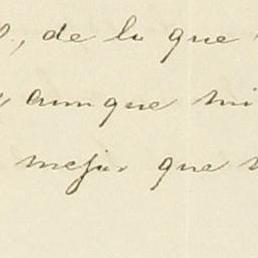 , de la que
aunque mi
mejor que